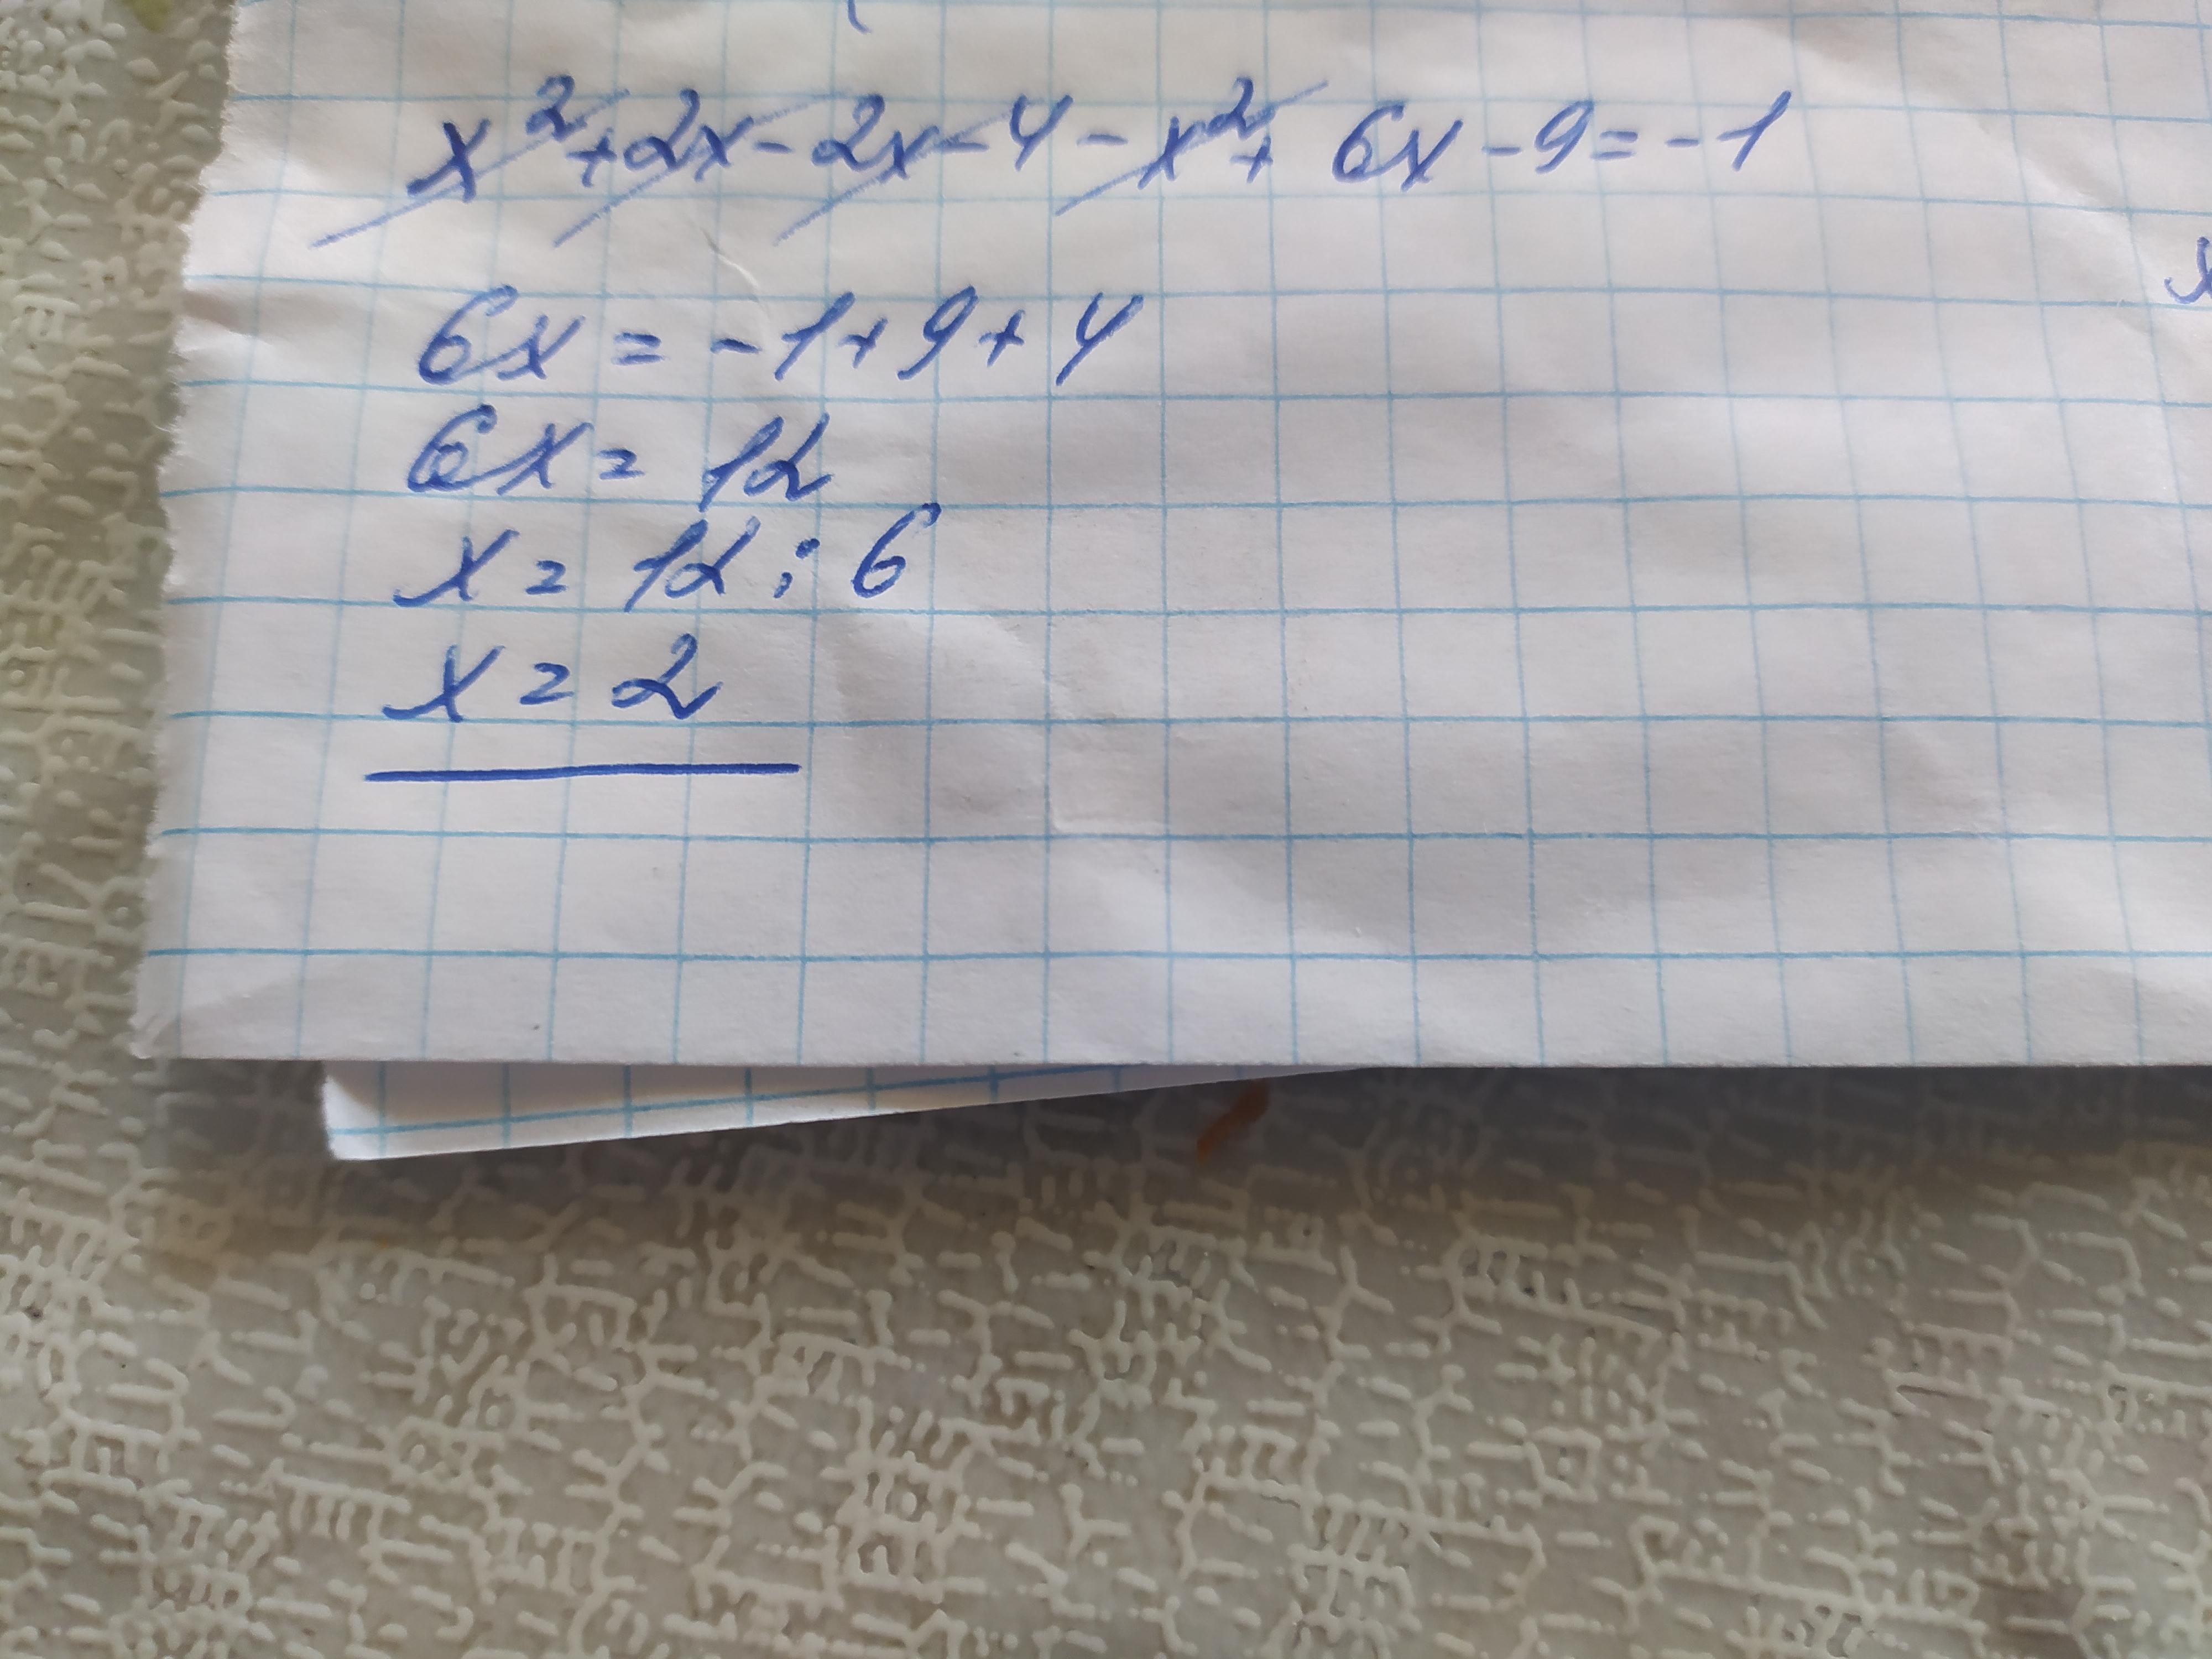 x²+2x-2x-4-x²+6x-9=-1
6x=-1+9+4
6x=12
x=12:6
x=2